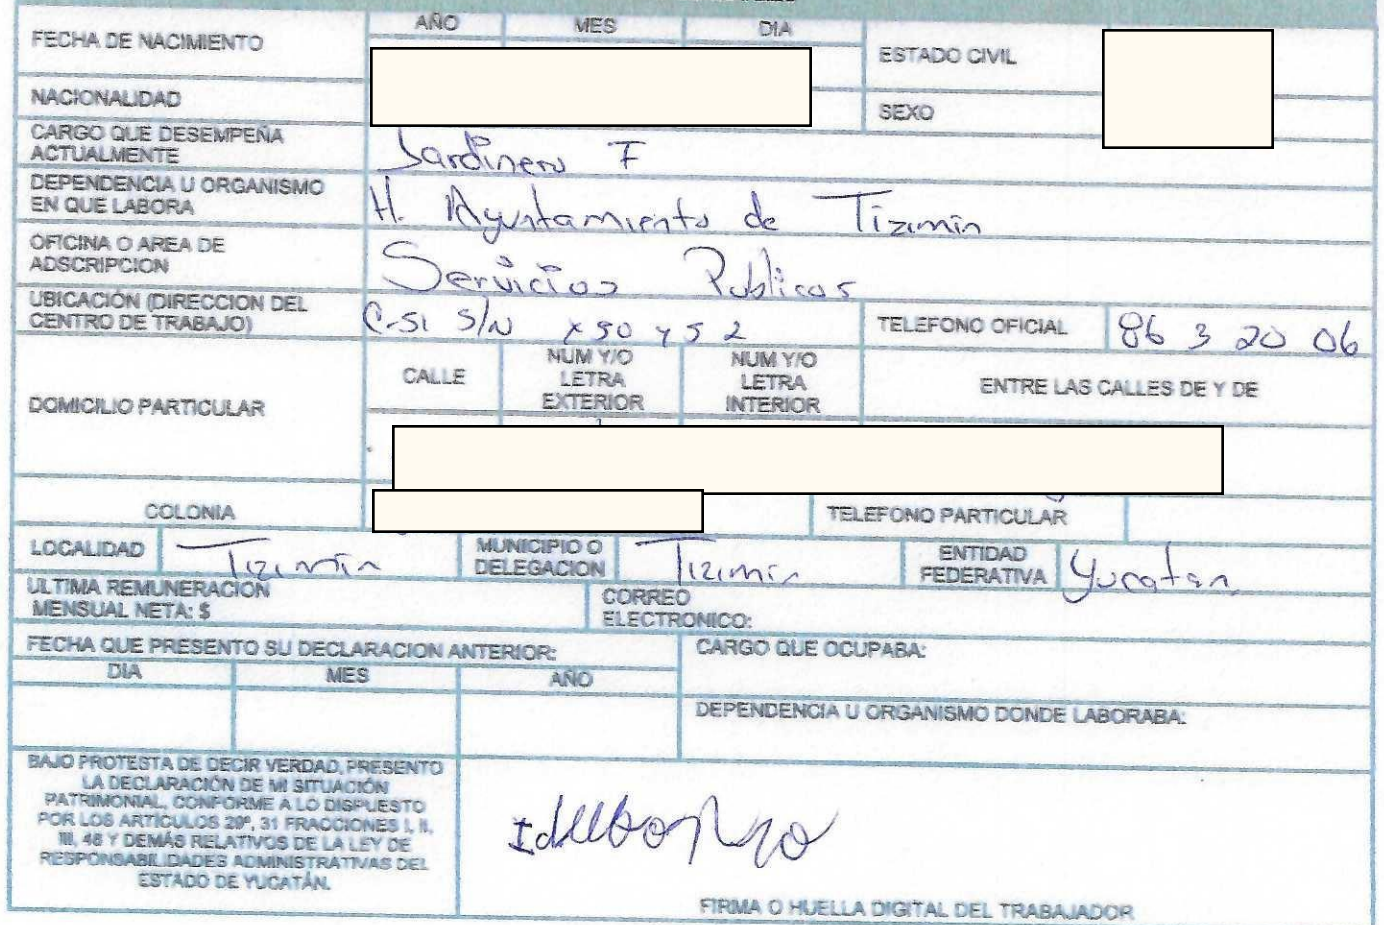 AÑO MES DIA
FECHA DE NACIMIENTO
ESTADO CIVIL
NACIONALIDAD
SEXO
CARGO QUE DESEMPEÑA
ACTUALMENTE
Jardinero F
DEPENDENCIA U ORGANISMO
EN QUE LABORA
H. Ayuntamiento de Tizimin
OFICINA O AREA DE
ADSCRIPCION
Servicios Publicos
UBICACIÓN (DIRECCION DEL
CENTRO DE TRABAJO)
C-51 S/N x 50 y 52
TELEFONO OFICIAL
86 3 20 06
DOMICILIO PARTICULAR
CALLE
NUM Y/O
LETRA
EXTERIOR
NUM Y/O
LETRA
INTERIOR
ENTRE LAS CALLES DE Y DE
COLONIA
TELEFONO PARTICULAR
LOCALIDAD
Tizimin
MUNICIPIO O
DELEGACION
Tizimin
ENTIDAD
FEDERATIVA
Yucatan
ULTIMA REMUNERACION
MENSUAL NETA: $
CORREO
ELECTRONICO:
FECHA QUE PRESENTO SU DECLARACION ANTERIOR:
CARGO QUE OCUPABA:
DIA MES AÑO
DEPENDENCIA U ORGANISMO DONDE LABORABA:
BAJO PROTESTA DE DECIR VERDAD, PRESENTO
LA DECLARACIÓN DE MI SITUACIÓN
PATRIMONIAL, CONFORME A LO DISPUESTO
POR LOS ARTÍCULOS 29º, 31 FRACCIONES I, II,
III, 48 Y DEMÁS RELATIVOS DE LA LEY DE
RESPONSABILIDADES ADMINISTRATIVAS DEL
ESTADO DE YUCATÁN.
FIRMA O HUELLA DIGITAL DEL TRABAJADOR